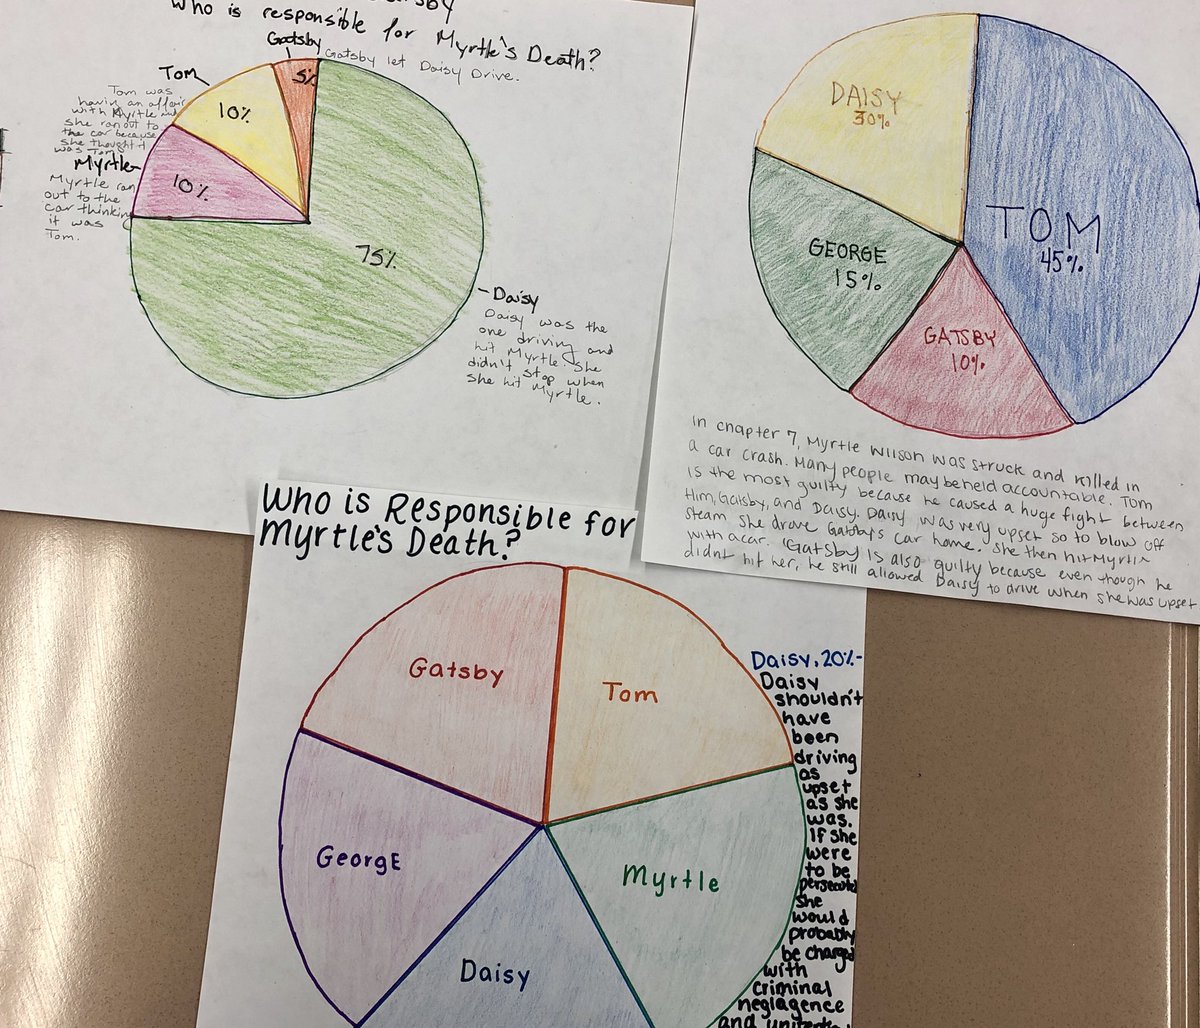 Who is responsible for Myrtle's Death?
Gatsby
Gatsby let Daisy Drive.
5%
Tom
10%
Tom was
havin an affair
with Myrtle and
she ran out to
the car because
she thought it
was Tom
Myrtle
10%
Myrtle ran
out to the
car thinking
it was
Tom.
75%
Daisy
Daisy was the
one driving and
hit Myrtle. She
didn't stop when
she hit Myrtle.
DAISY
30%
TOM
45%
GEORGE
15%
GATSBY
10%
In chapter 7, Myrtle Wilson was struck and killed in
a car crash. Many people may be held accountable. Tom
is the most guilty because he caused a huge fight between
Him, Gatsby, and Daisy. Daisy was very upset so to blow off
steam she drove Gatsby's car home. She then hit Myrtle
with a car. Gatsby is also guilty because even though he
didnt hit her, he still allowed Daisy to drive when she was upset
Who is Responsible for
Myrtle's Death?
Gatsby
Tom
GeorgE
Myrtle
Daisy
Daisy, 20%-
Daisy
shouldn't
have
been
driving
as
upset
as she
was.
If she
were
to be
persecuted
she
would
probably
be charged
with
criminal
neglagence
and